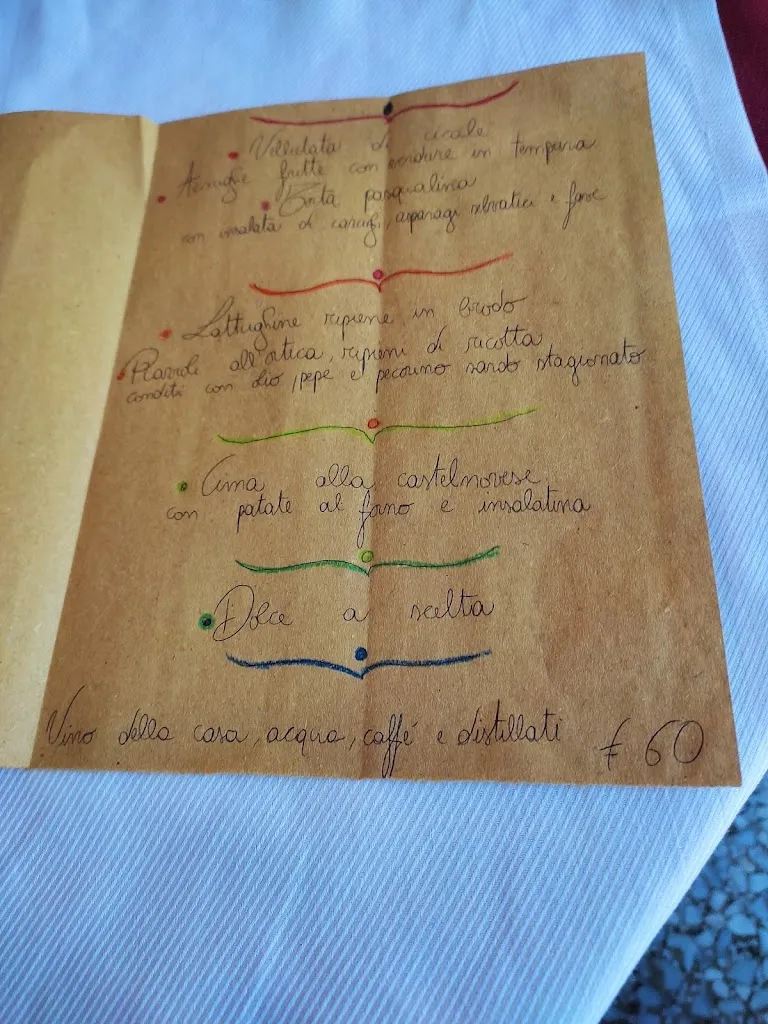 Vellutata di cicale
Acciughe fritte con verdure in tempura
Torta pasqualina
con insalata di carciofi, asparagi selvatici e fave
Lattughine ripiene in brodo
Ravioli all'ortica, ripieni di ricotta
conditi con olio, pepe e pecorino sardo stagionato
Cima alla castelnovese
con patate al forno e insalatina
Dolce a scelta
Vino della casa, acqua, caffé e distillati € 60